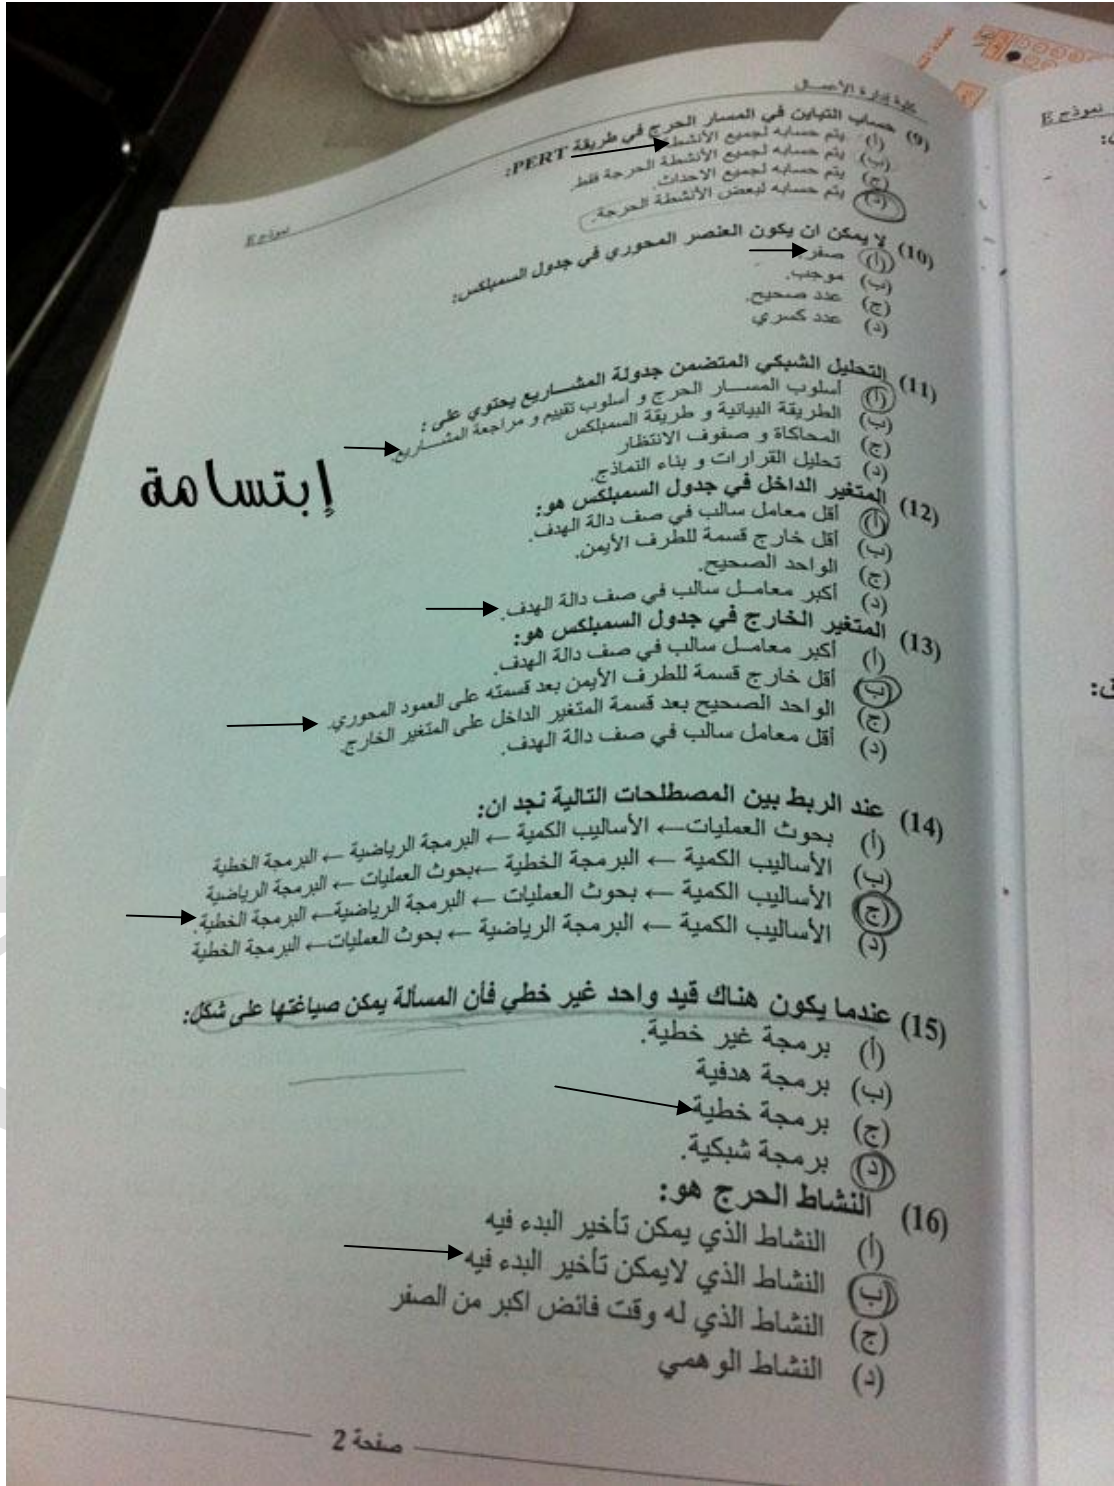 كلية إدارة الأعمال
نموذج E
(9) حساب التباين في المسار الحرج في طريقة PERT:
(أ) يتم حسابه لجميع الأنشطة
(ب) يتم حسابه لجميع الأنشطة الحرجة فقط
(ج) يتم حسابه لجميع الاحداث.
(د) يتم حسابه لبعض الأنشطة الحرجة.
(10) لا يمكن ان يكون العنصر المحوري في جدول السمبلكس:
(أ) صفر
(ب) موجب.
(ج) عدد صحيح.
(د) عدد كسري
(11) التحليل الشبكي المتضمن جدولة المشاريع يحتوي على :
(أ) أسلوب المسار الحرج و أسلوب تقييم و مراجعة المشاريع.
(ب) الطريقة البيانية و طريقة السمبلكس
(ج) المحاكاة و صفوف الانتظار
(د) تحليل القرارات و بناء النماذج.
إبتسامة
(12) المتغير الداخل في جدول السمبلكس هو:
(أ) أقل معامل سالب في صف دالة الهدف.
(ب) أقل خارج قسمة للطرف الأيمن.
(ج) الواحد الصحيح.
(د) أكبر معامل سالب في صف دالة الهدف.
(13) المتغير الخارج في جدول السمبلكس هو:
(أ) أكبر معامل سالب في صف دالة الهدف.
(ب) أقل خارج قسمة للطرف الأيمن بعد قسمته على العمود المحوري.
(ج) الواحد الصحيح بعد قسمة المتغير الداخل على المتغير الخارج.
(د) أقل معامل سالب في صف دالة الهدف.
(14) عند الربط بين المصطلحات التالية نجد ان:
(أ) بحوث العمليات← الأساليب الكمية ← البرمجة الرياضية ← البرمجة الخطية
(ب) الأساليب الكمية ← البرمجة الخطية ←بحوث العمليات ← البرمجة الرياضية
(ج) الأساليب الكمية ← بحوث العمليات ← البرمجة الرياضية← البرمجة الخطية.
(د) الأساليب الكمية ← البرمجة الرياضية ← بحوث العمليات← البرمجة الخطية
(15) عندما يكون هناك قيد واحد غير خطي فأن المسألة يمكن صياغتها على شكل:
(أ) برمجة غير خطية.
(ب) برمجة هدفية
(ج) برمجة خطية
(د) برمجة شبكية.
(16) النشاط الحرج هو:
(أ) النشاط الذي يمكن تأخير البدء فيه
(ب) النشاط الذي لايمكن تأخير البدء فيه
(ج) النشاط الذي له وقت فائض اكبر من الصفر
(د) النشاط الوهمي
صفحة 2
نموذج E